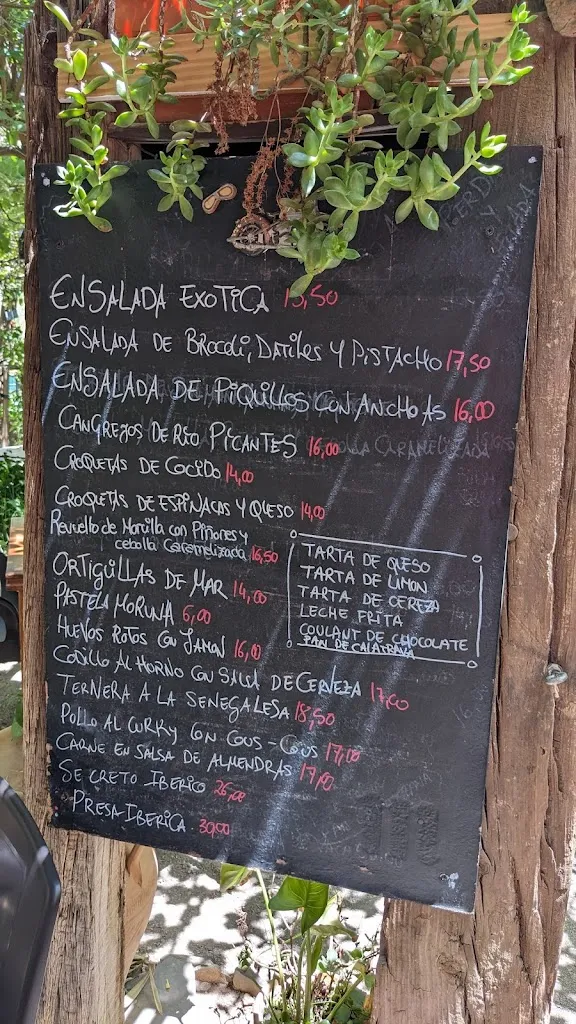 ENSALADA EXOTICA 15,50
ENSALADA DE BROCOLI, DATILES Y PISTACHO 17,50
ENSALADA DE PIQUILLOS CON ANCHOAS 16,00
CANGREJOS DE RIO PICANTES 16,00
CROQUETAS DE COCIDO 14,00
CROQUETAS DE ESPINACAS Y QUESO 14,00
Revuelto de Morcilla con Piñones y
cebolla Caramelizada 16,50
ORTIGUILLAS DE MAR 14,00
PASTELA MORUNA 6,00
HUEVOS ROTOS CON JAMON 16,00
CODILLO AL HORNO CON SALSA DE CERVEZA 17,00
TERNERA A LA SENEGALESA 18,50
POLLO AL CURRY CON COUS-COUS 17,00
CARNE EN SALSA DE ALMENDRAS 17,00
SECRETO IBERICO 26,00
PRESA IBERICA 30,00
TARTA DE QUESO
TARTA DE LIMON
TARTA DE CEREZA
LECHE FRITA
COULANT DE CHOCOLATE
PAN DE CALATRAVA